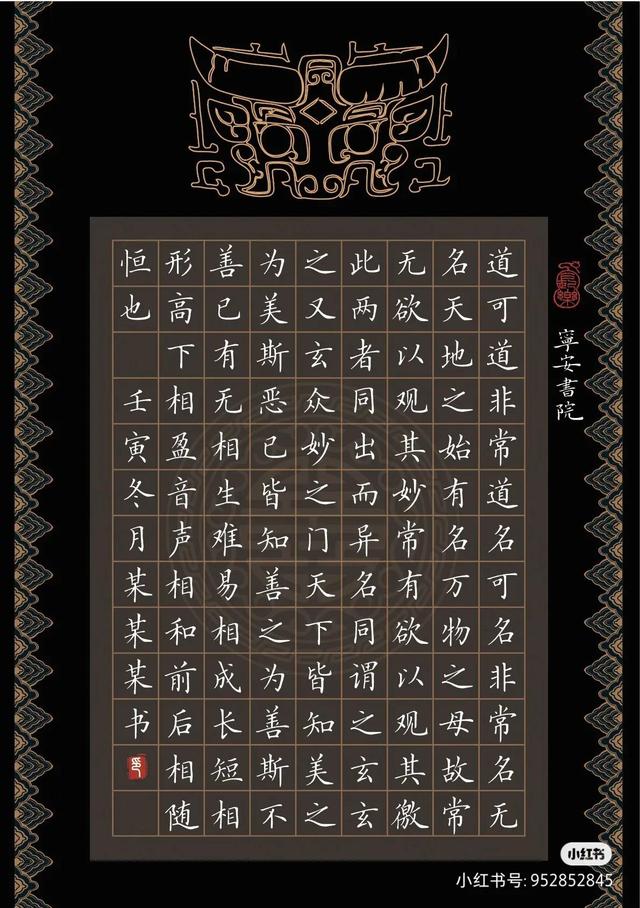 寧安書院
道可道非常道名可名非常名无
名天地之始有名万物之母故常
无欲以观其妙常有欲以观其徼
此两者同出而异名同谓之玄玄
之又玄众妙之门天下皆知美之
为美斯恶已皆知善之为善斯不
善已有无相生难易相成长短相
形高下相盈音声相和前后相随
恒也 壬寅冬月某某某书
印
小红书
小红书号: 952852845